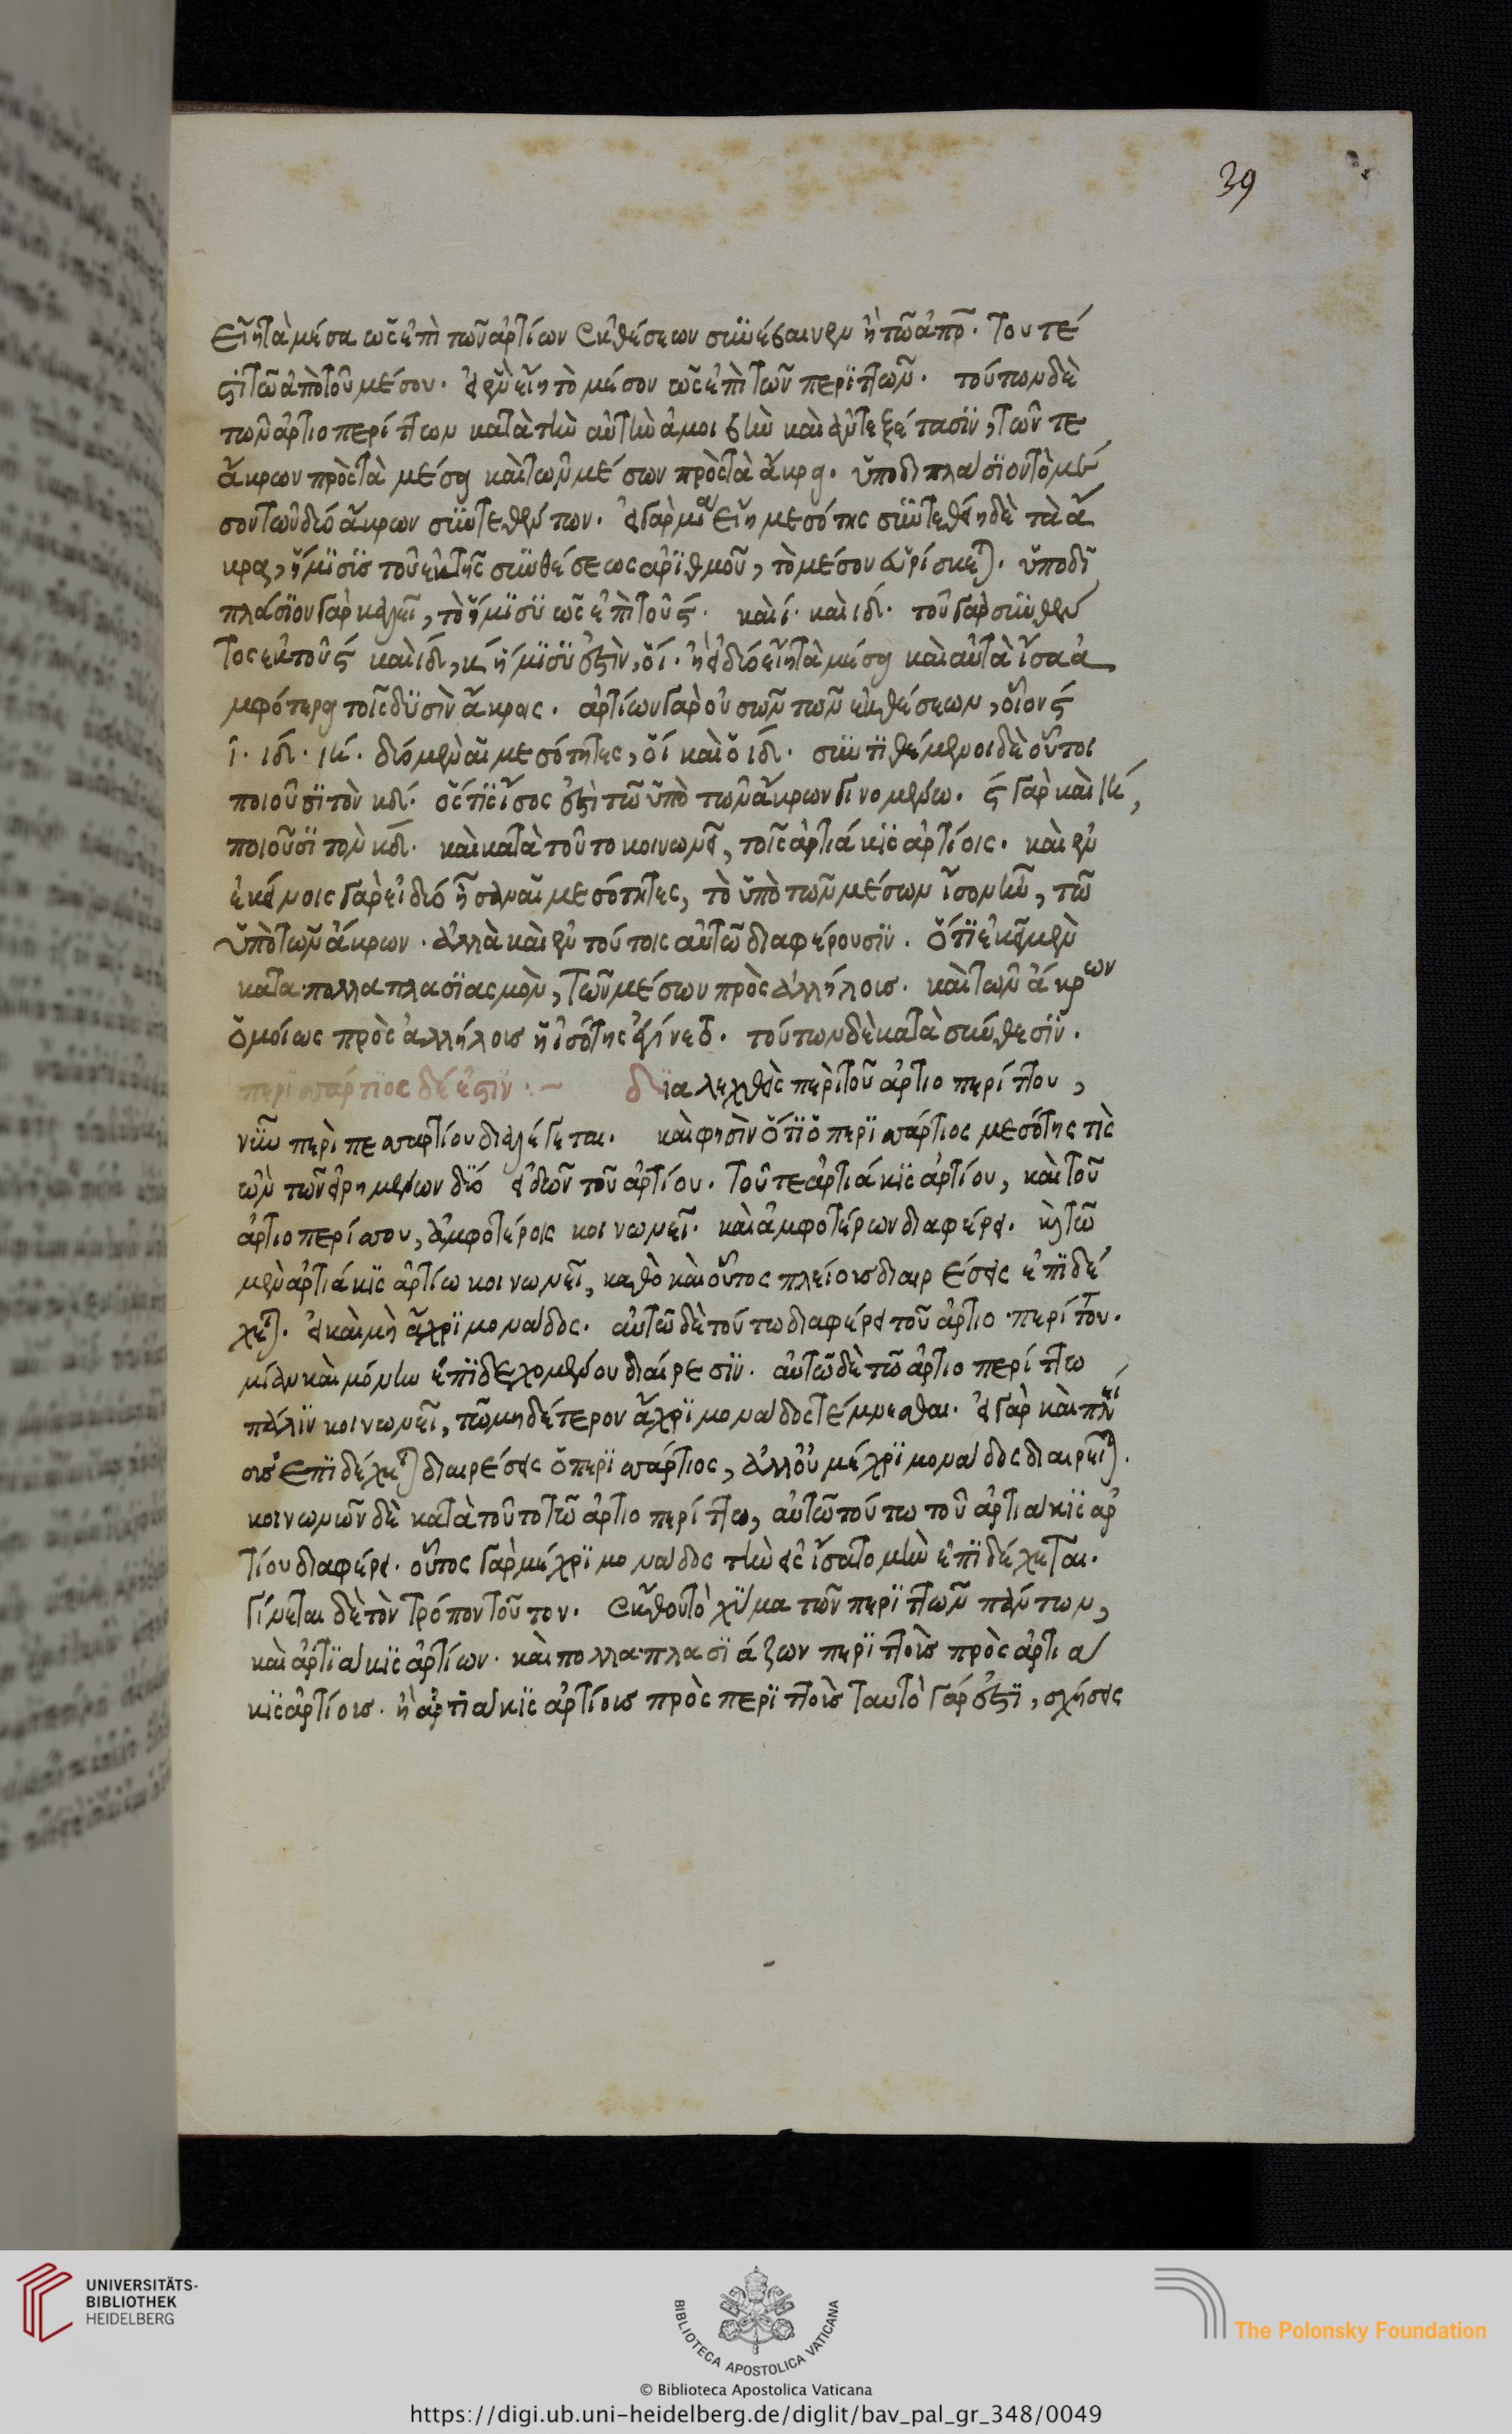 39
εἴη τὰ μέσα ὡς ἐπὶ τῶν ἀρτίων ἐκθέσεων συνέβαινεν ἢ τῷ ἀπο. τουτέ
στι τῷ ἀπὸ τοῦ μέσου. εἰ ἓν εἴη τὸ μέσον ὡς ἐπὶ τῶν περιττῶν. τούτων δὲ
τῶν ἀρτιοπερίττων κατὰ τὴν αὐτὴν ἀμοιβὴν καὶ ἀντεξέτασιν, τῶν τε
ἄκρων πρὸς τὰ μέσα καὶ τῶν μέσων πρὸς τὰ ἄκρα. ὑποδιπλάσιον τὸ μέ
σον τῶν δύο ἄκρων συντεθέντων. εἰ γὰρ μία εἴη μεσότης συντεθείη δὲ τὰ ἄ
κρα, ἥμισυς τοῦ ἐκ τῆς συνθέσεως ἀριθμοῦ, τὸ μέσον εὑρίσκεται. ὑποδι
πλάσιον γὰρ καλεῖ, τὸ ἥμισυ ὡς ἐπὶ τοῦ ς. καὶ ι. καὶ ιδ. τοῦ γὰρ συνθέν
τος ἐκ τοῦ ς καὶ ιδ, κ ἥμισυ ἐστὶν, ὁ ι. ἢ εἰ δύο εἴη τὰ μέσα καὶ αὐτὰ ἴσα ἀ
μφότερα τοῖς δυσὶν ἄκροις. ἀρτίων γὰρ οὐσῶν τῶν ἐκθέσεων, οἷον ς
ι. ιδ. ιη. δύο μὲν αἱ μεσότητες, ὁ ι καὶ ὁ ιδ. συντιθέμενοι δὲ οὗτοι
ποιοῦσι τὸν κδ. ὅς τις ἴσος ἐστὶ τῷ ὑπὸ τῶν ἄκρων γινομένῳ. ς γὰρ καὶ ιη,
ποιοῦσι τὸν κδ. καὶ κατὰ τοῦτο κοινωνεῖ, τοῖς ἀρτιάκις ἀρτίοις. καὶ ἐν
ἐκείνοις γὰρ εἰ δύο ἦσαν αἱ μεσότητες, τὸ ὑπὸ τῶν μέσων ἴσον ἦν, τῷ
ὑπὸ τῶν ἄκρων. ἀλλὰ καὶ ἐν τούτοις αὐτῷ διαφέρουσιν. ὅτι ἐκεῖ μὲν
κατα πολλαπλασιασμὸν, τῶν μέσων πρὸς ἀλλήλους. καὶ τῶν ἄκρων
ὁμοίως πρὸς ἀλλήλους ἡ ἰσότης ἐγίνετο. τούτων δὲ κατὰ σύνθεσιν.
περισσάρτιος δέ ἐστιν :~ διαλεχθεὶς περὶ τοῦ ἀρτιοπερίττου,
νῦν περὶ πεσσαρτίου διαλέγεται. καὶ φησὶν ὅτι ὁ περισσάρτιος μεσότης τὶς
ὢν τῶν εἰρημένων δύο εἰδῶν τοῦ ἀρτίου. τοῦ τε ἀρτιάκις ἀρτίου, καὶ τοῦ
ἀρτιοπερίσσου, ἀμφοτέροις κοινωνεῖ. καὶ ἀμφοτέρων διαφέρει. καὶ τῷ
μὲν ἀρτιάκις ἀρτίῳ κοινωνεῖ, καθὸ καὶ οὗτος πλείους διαιρέσεις ἐπιδέ
χεται. εἰ καὶ μὴ ἄχρι μονάδος. αὐτῷ δὲ τούτῳ διαφέρει τοῦ ἀρτιοπερίττου.
μίαν καὶ μόνην ἐπιδεχομένου διαίρεσιν. αὐτῷ δὲ τῷ ἀρτιοπερίττῳ
πάλιν κοινωνεῖ, τῷ μηδέτερον ἄχρι μονάδος τέμνεσθαι. εἰ γὰρ καὶ πλεί
ους ἐπιδέχεται διαιρέσεις ὁ περισσάρτιος, ἀλλ' οὐ μέχρι μονάδος διαιρεῖται.
κοινωνῶν δὲ κατὰ τοῦτο τῷ ἀρτιοπερίττῳ, αὐτῷ τούτῳ τοῦ ἀρτιάκις ἀρ
τίου διαφέρει. οὗτος γὰρ μέχρι μονάδος τὴν εἰς ἴσα τομὴν ἐπιδέχεται.
γίνεται δὲ τὸν τρόπον τοῦτον. ἐκθοῦ τὸ χύμα τῶν περιττῶν πάντων,
καὶ ἀρτιάκις ἀρτίων. καὶ πολλαπλασιάζων περιττοὺς πρὸς ἀρτιά
κις ἀρτίους. ἢ ἀρτιάκις ἀρτίους πρὸς περιττοὺς ταυτὸ γάρ ἐστι, σχήσεις
UNIVERSITÄTS-
BIBLIOTHEK
HEIDELBERG
BIBLIOTECA APOSTOLICA VATICANA
© Biblioteca Apostolica Vaticana
The Polonsky Foundation
https://digi.ub.uni-heidelberg.de/diglit/bav_pal_gr_348/0049